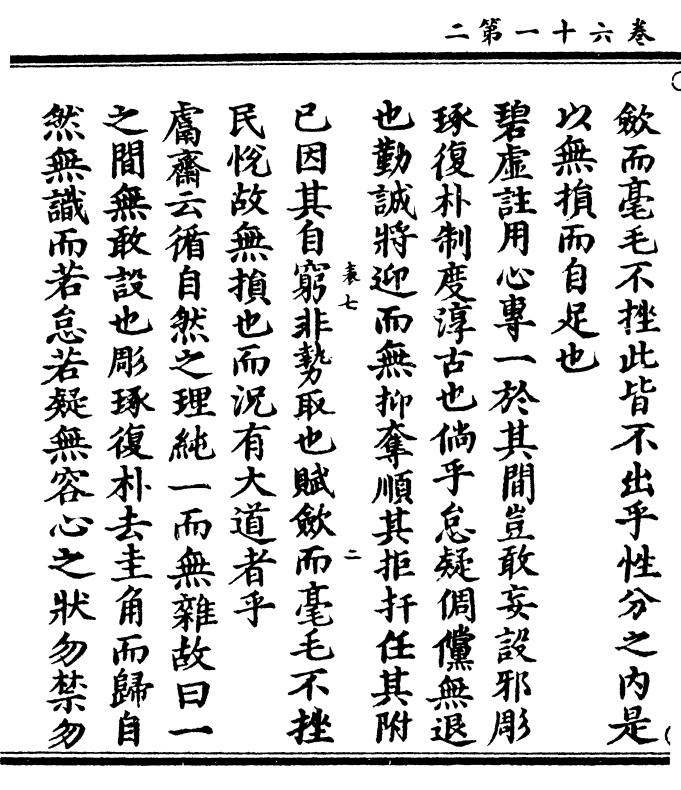 卷六十一第二
斂而毫毛不挫此皆不出乎性分之内是
以無損而自足也
碧虛註用心專一於其間豈敢妄設邪彫
琢復朴制度淳古也倘乎怠疑倜儻無退
也勤誠將迎而無抑奪順其拒扞任其附
已因其自窮非勢取也賦斂而毫毛不挫
表七
二
民悅故無損也而況有大道者乎
鬳齋云循自然之理純一而無雜故曰一
之間無敢設也彫琢復朴去圭角而歸自
然無識而若怠若疑無容心之狀勿禁勿